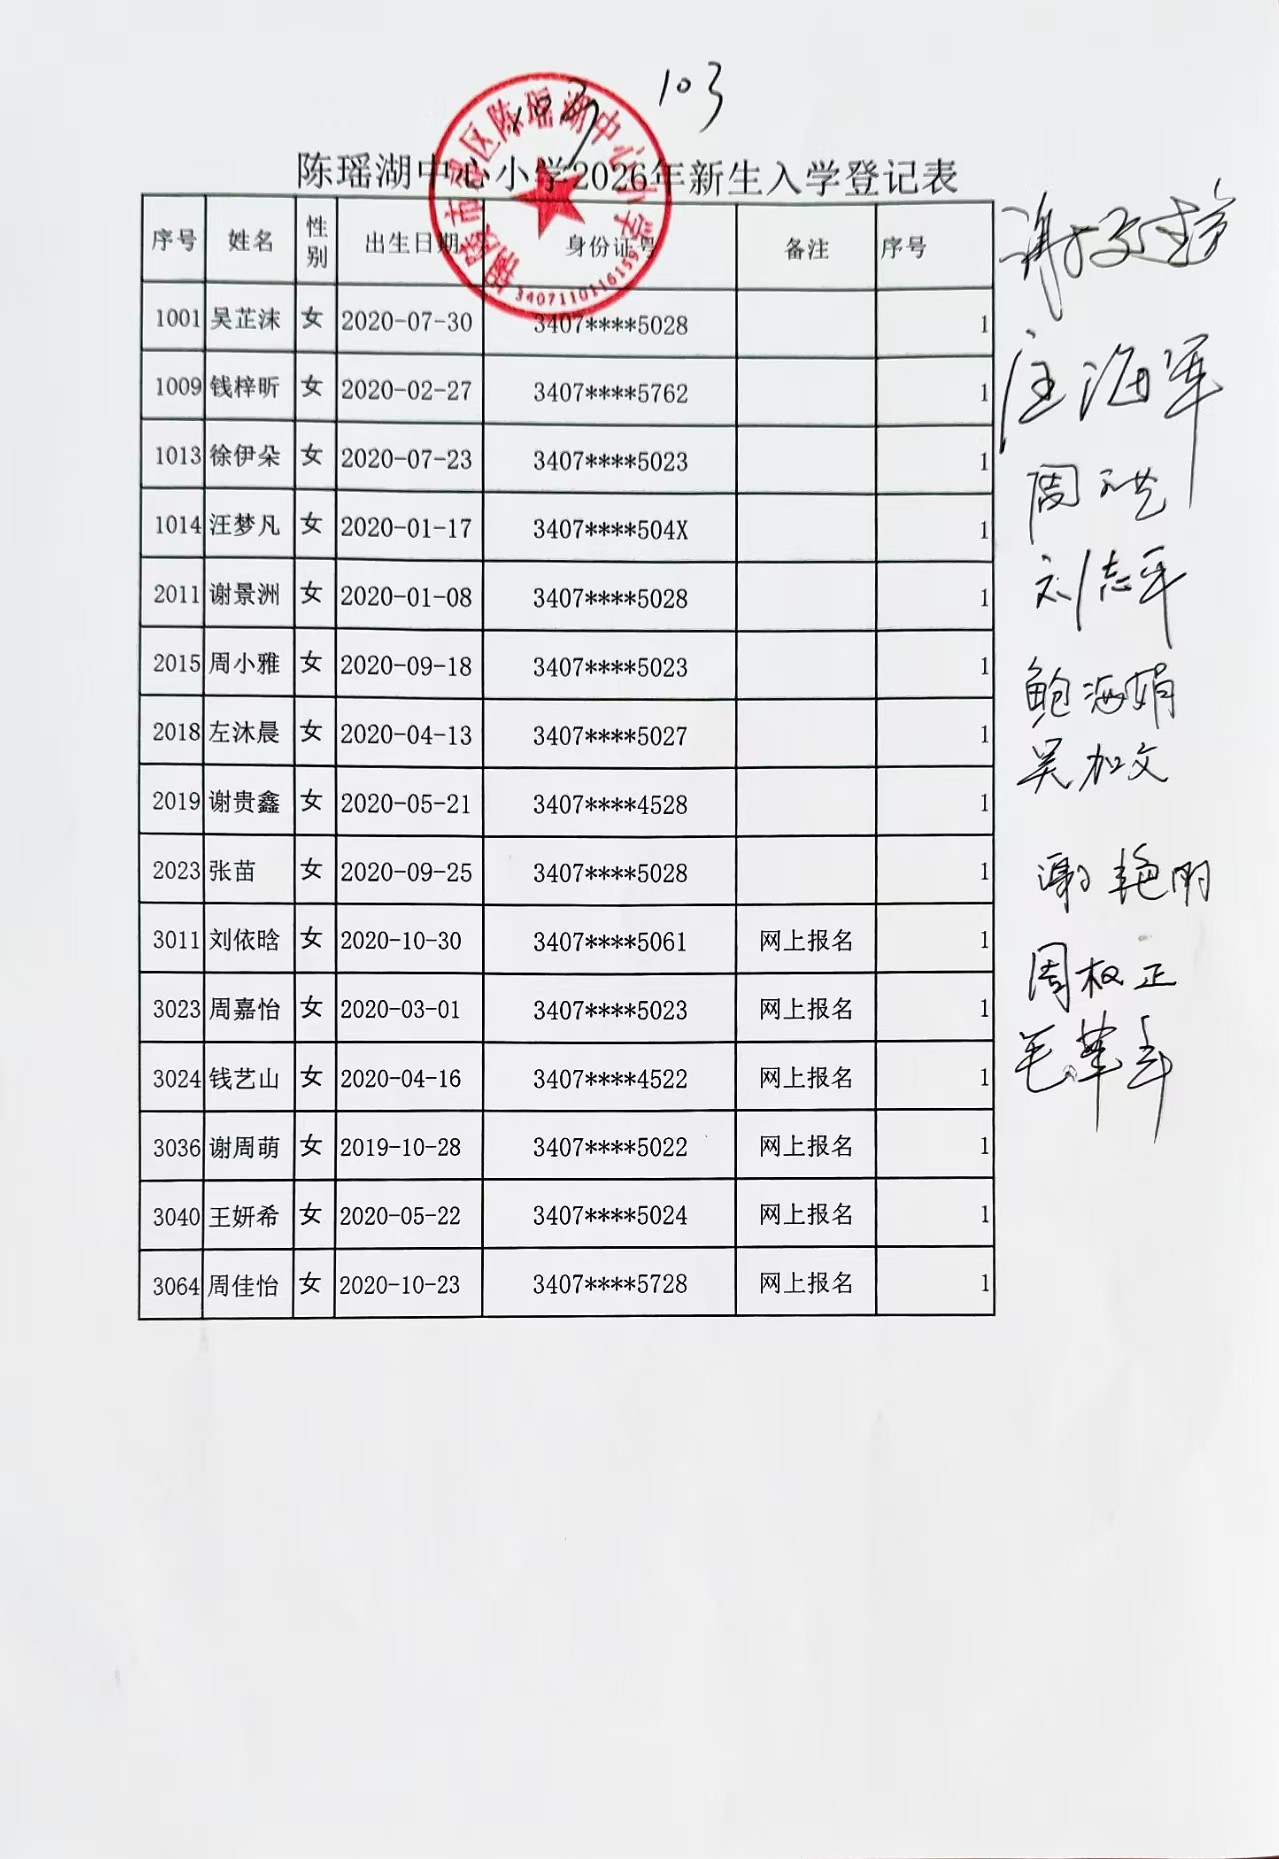 103
陈瑶湖中心小学2026年新生入学登记表
铜陵市郊区陈瑶湖中心小学
3407110116159
序号 姓名 性别 出生日期 身份证号 备注 序号
1001 吴芷沫 女 2020-07-30 3407****5028 1
1009 钱梓昕 女 2020-02-27 3407****5762 1
1013 徐伊朵 女 2020-07-23 3407****5023 1
1014 汪梦凡 女 2020-01-17 3407****504X 1
2011 谢景洲 女 2020-01-08 3407****5028 1
2015 周小雅 女 2020-09-18 3407****5023 1
2018 左沐晨 女 2020-04-13 3407****5027 1
2019 谢贵鑫 女 2020-05-21 3407****4528 1
2023 张苗 女 2020-09-25 3407****5028 1
3011 刘依晗 女 2020-10-30 3407****5061 网上报名 1
3023 周嘉怡 女 2020-03-01 3407****5023 网上报名 1
3024 钱艺山 女 2020-04-16 3407****4522 网上报名 1
3036 谢周萌 女 2019-10-28 3407****5022 网上报名 1
3040 王妍希 女 2020-05-22 3407****5024 网上报名 1
3064 周佳怡 女 2020-10-23 3407****5728 网上报名 1
汪海军
刘志平
鲍海娟
吴加文
周权正